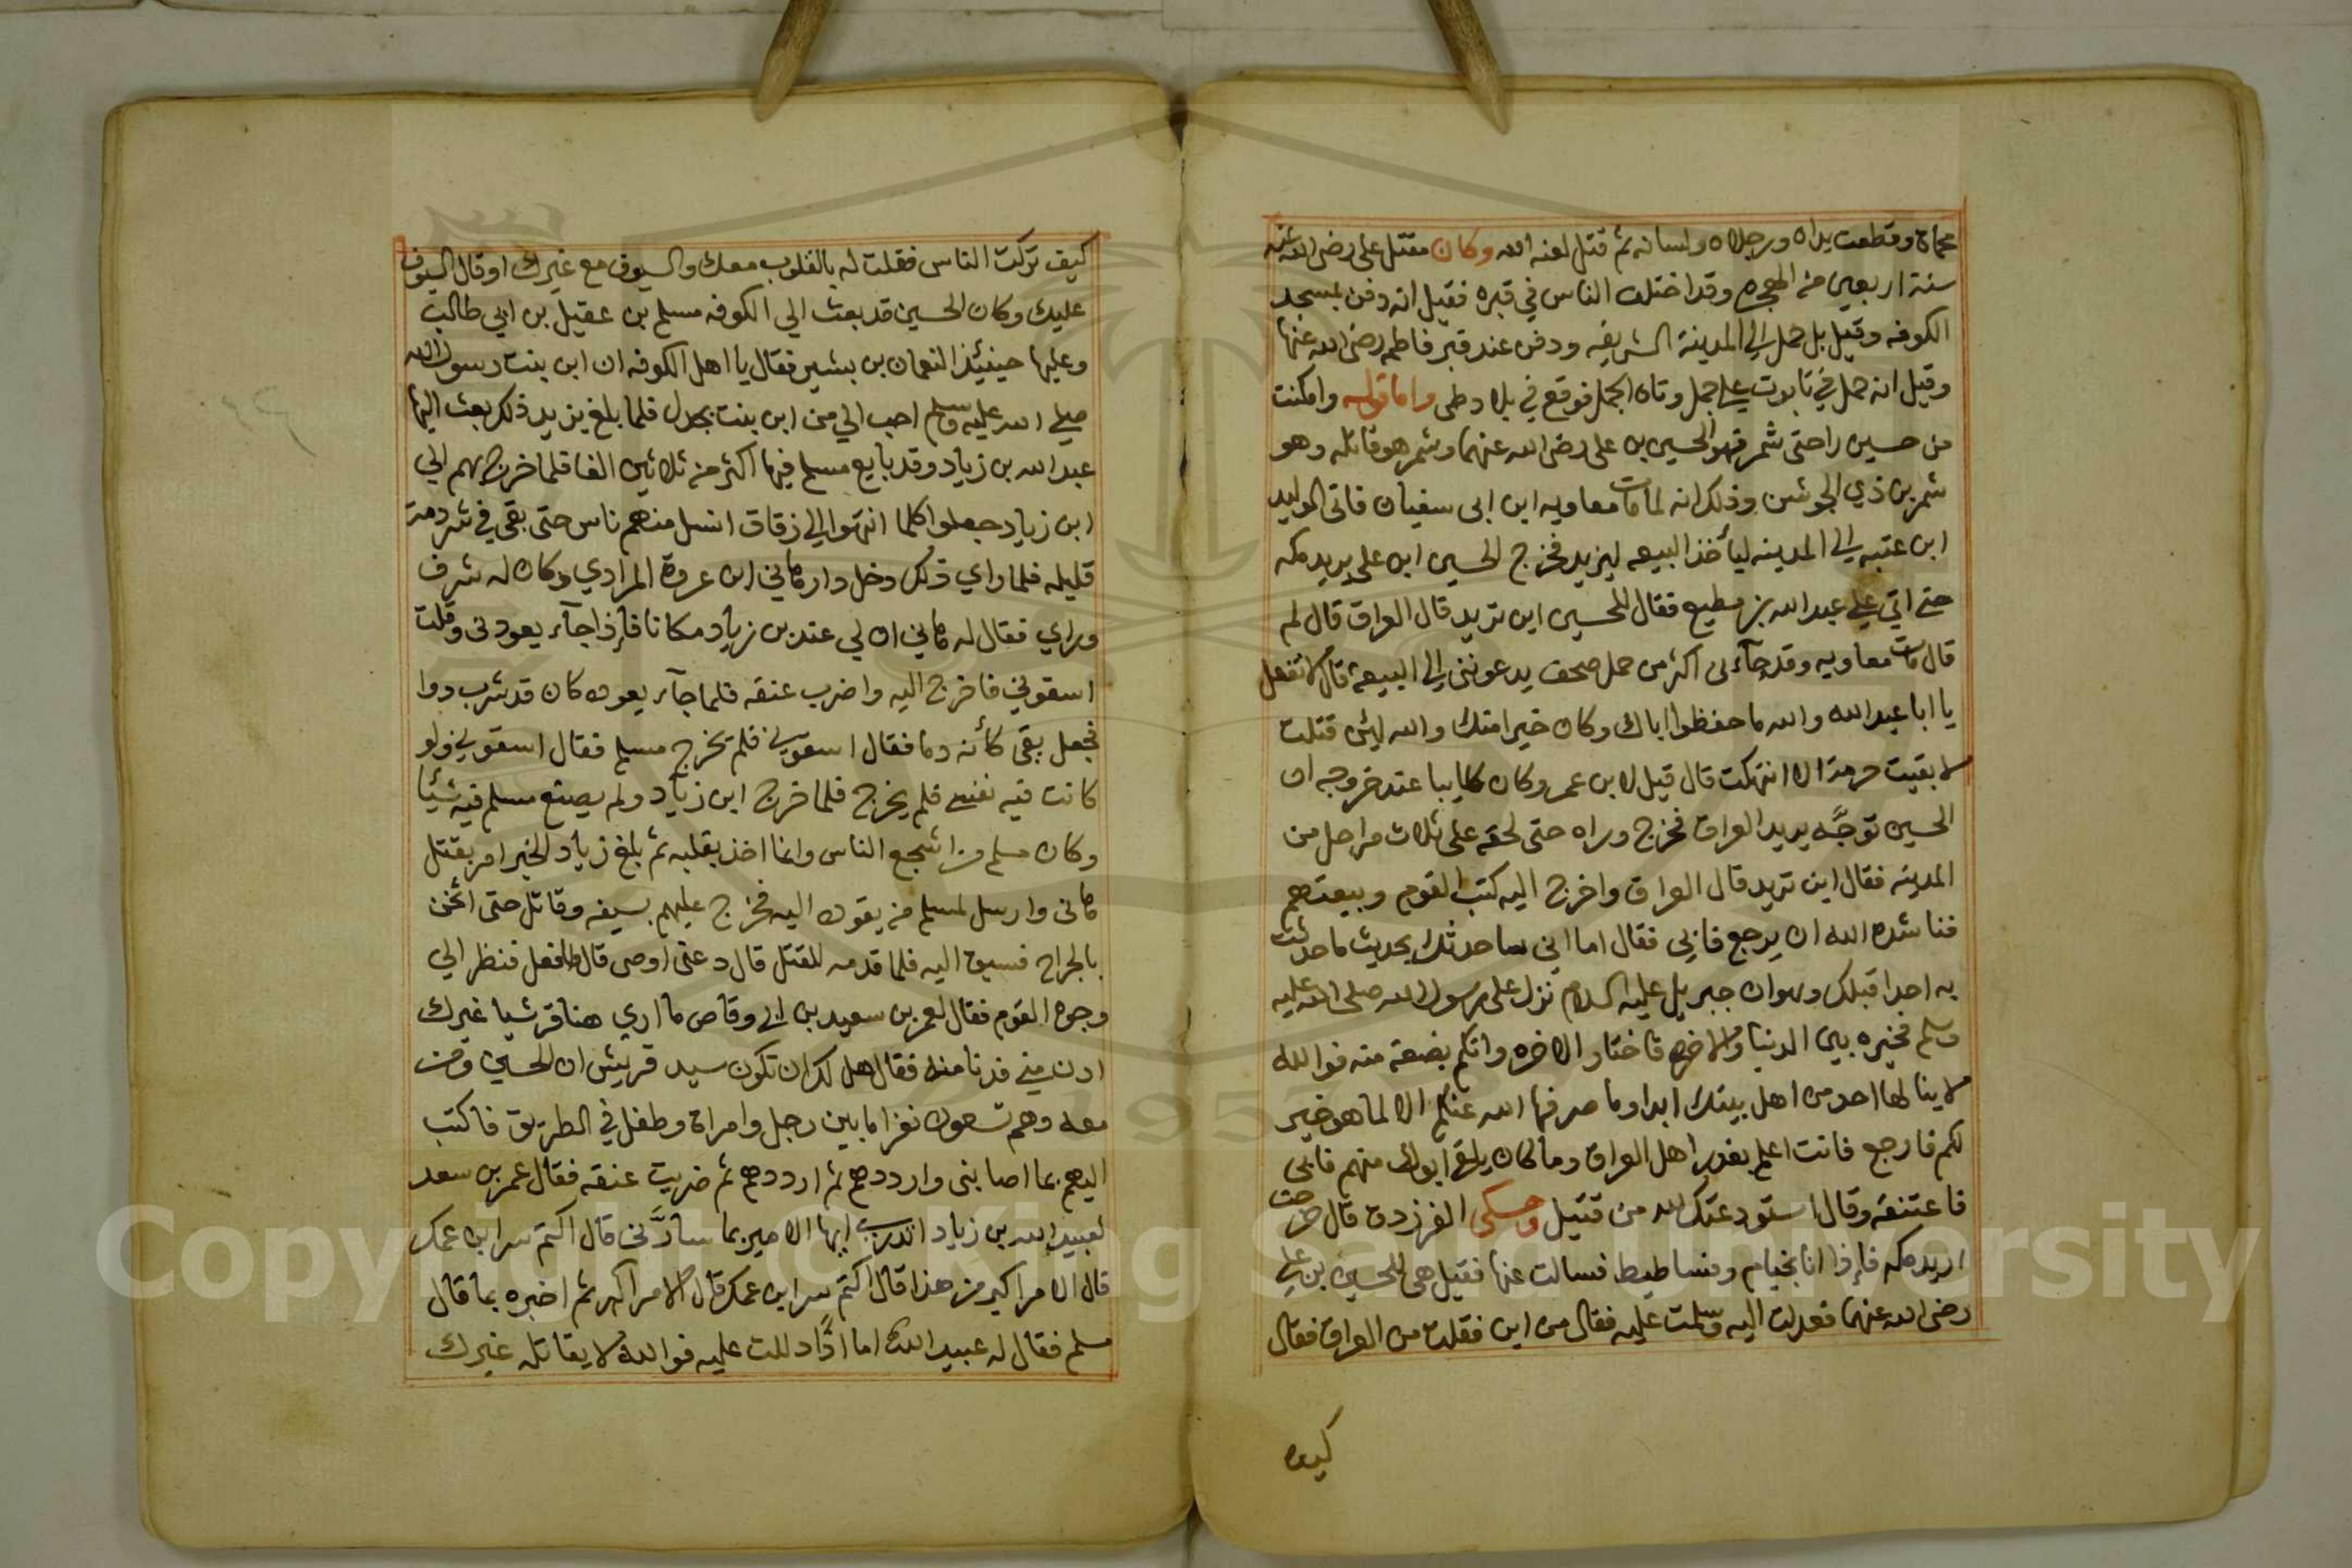 محماة وقطعت يداه ورجلاه ولسانه ثم قتل لعنه الله وكان مقتل علي رضي الله عنه
سنة اربعين من الهجره وقد اختلف الناس في قبره فقيل انه دفن بمسجد
الكوفه وقيل بل حمل الي المدينة الشريفه ودفن عند قبر فاطمه رضي الله عنها
وقيل انه حمل في تابوت علي جمل وتاه الجمل فوقع في بلاد طي واما قوله وامكنت
من حسين راحتى شمر فهو الحسين بن علي رضي الله عنهما وشمر هو قاتله وهو
شمر بن ذي الجوشن وذلك انه لما مات معاويه ابن ابى سفيان فاتى الوليد
ابن عتبه الي المدينه ليأخذ البيعه ليزيد فخرج الحسين ابن علي يريد مكه
حتى اتي علي عبد الله بن مطيع فقال للحسين اين تريد قال العراق قال لم
قال مات معاويه وقد جآءنى اكثر من حمل صحف يدعونني الي البيعة قال لا تفعل
يا ابا عبد الله والله ما حفظوا اباك وكان خيرا منك والله ليئن قتلت
لا بقيت حرمة الا انتهكت قال قيل لابن عمر وكان غايبا عند خروجه ان
الحسين توجَّه يريد العراق فخرج وراه حتى لحقه على ثلاث مراحل من
المدينه فقال اين تريد قال العراق واخرج اليه كتب القوم وبيعتهم
فناشده الله ان يرجع فابى فقال اما انى ساحدثك بحديث ما حدثت
به احدا قبلك وهو ان جبريل عليه السلام نزل على رسول الله صلى الله عليه
وسلم فخيره بين الدنيا والاخره فاختار الاخره وانكم بضعة منه فوالله
لا ينالها احد من اهل بيتك ابدا وما صرفها الله عنكم الا لما هو خير
لكم فارجع فانت اعلم بغدر اهل العراق وما كان يلقى ابوك منهم فابى
فاعتنقه وقال استودعتك الله من قتيل وحكى الفرزدق قال خرجت
اريد مكه فإذا انا بخيام وفساطيط فسالت عنها فقيل هى للحسين بن علي
رضي الله عنهما فعدلت اليه وسلمت عليه فقال من اين فقلت من العراق فقال
كيف
كيف تركت الناس فقلت له بالقلوب معك والسيوف مع غيرك او قال السيوف
عليك وكان الحسين قد بعث الي الكوفه مسلم بن عقيل بن ابي طالب
وعليها حينئذ النعمان بن بشير فقال يا اهل الكوفه ان ابن بنت رسول الله
صلى الله عليه وسلم احب الي من ابن بنت بجدل فلما بلغ يزيد ذلك بعث اليها
عبد الله بن زياد وقد بايع مسلم فيها اكثر من ثلاثين الفا فلما خرج بهم الي
ابن زياد جعلوا كلما انتهوا الي زقاق انسل منهم ناس حتى بقى في شردمة
قليله فلما راي ذلك دخل دار هاني ابن عروة المرادي وكان له شرف
وراي فقال له هاني ان لي عند بن زياد مكانا فإذا جآء يعودنى وقلت
اسقوني فاخرج اليه واضرب عنقه فلما جآء يعوده كان قد شرب دوا
فجعل يقى كأنه دما فقال اسقوني فلم يخرج مسلم فقال اسقوني ولو
كانت فيه نفسى فلم يخرج فلما خرج ابن زياد ولم يصنع مسلم فيه شيئا
وكان مسلم من اشجع الناس وانما اخذ بقلبه ثم بلغ زياد الخبر امر بقتل
هانى وارسل لمسلم من يقوده اليه فخرج عليهم بسيفه وقاتل حتى اثخن
بالجراح فسيق اليه فلما قدمه للقتل قال دعنى اوصى قال افعل فنظر الي
وجوه القوم فقال لعمر بن سعيد بن ابي وقاص ما اري هنا قرشيا غيرك
ادن مني فدنا منه فقال هل لك ان تكون سيد قريش ان الحسين ومن
معه وهم تسعون نفرا ما بين رجل وامراة وطفل في الطريق فاكتب
اليهم بما اصابنى وارددهم ثم ارددهم ثم ضربت عنقه فقال عمر بن سعد
لعبيد الله بن زياد اتدرى ايها الامير بما سارَّنى قال اكتم سر ابن عمك
قال الامر اكبر من هذا قال اكتم سر ابن عمك قال الامر اكبر ثم اخبره بما قال
مسلم فقال له عبيد الله اما اذًا دللت عليه فوالله لا يقاتله غيرك
Copyright © King Saud University
1957